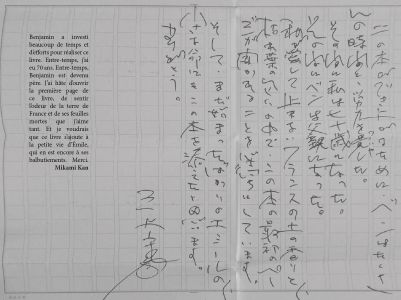 Benjamin a investi
beaucoup de temps et
d'efforts pour réaliser ce
livre. Entre-temps, j'ai
eu 70 ans. Entre-temps,
Benjamin est devenu
père. J'ai hâte d'ouvrir
la première page de
ce livre, de sentir
l'odeur de la terre de
France et de ses feuilles
mortes que j'aime
tant. Et je voudrais
que ce livre s'ajoute à
la petite vie d'Émile,
qui en est encore à ses
balbutiements. Merci.
Mikami Kan
この本ができ上がるために、ベンはたくさ
んの時間と労力を費した。
その間に私は七十歳になった。
その間にベンは父親になった。
私が愛して止まないフランスの土の香りと
枯葉の匂い
この本の最初のペー
ジが
ことを楽しみにしています。
そして、まだ始まったばかりのエミールの
小さな命にこの本を
ます。
ありがとう。
三上寛